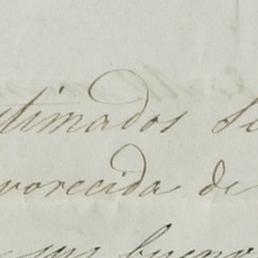 stimados Se
vorecida de
sus buenos